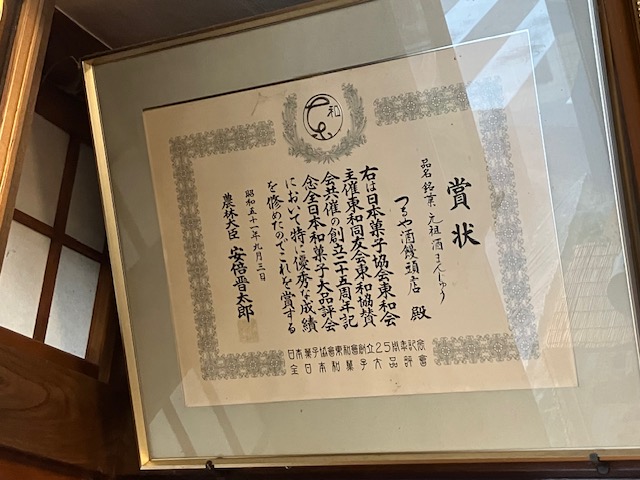 和
賞状
品名 銘菓 元祖酒まんじゅう
つるや酒饅頭店 殿
右は日本菓子協会東和会
主催東和同友会東和協賛
会共催の創立二十五周年記
念全日本和菓子大品評会
において特に優秀な成績
を修めたのでこれを賞する
昭和五十一年九月三日
農林大臣 安倍晋太郎
日本菓子協會東和會創立25周年記念
全日本和菓子大品評會